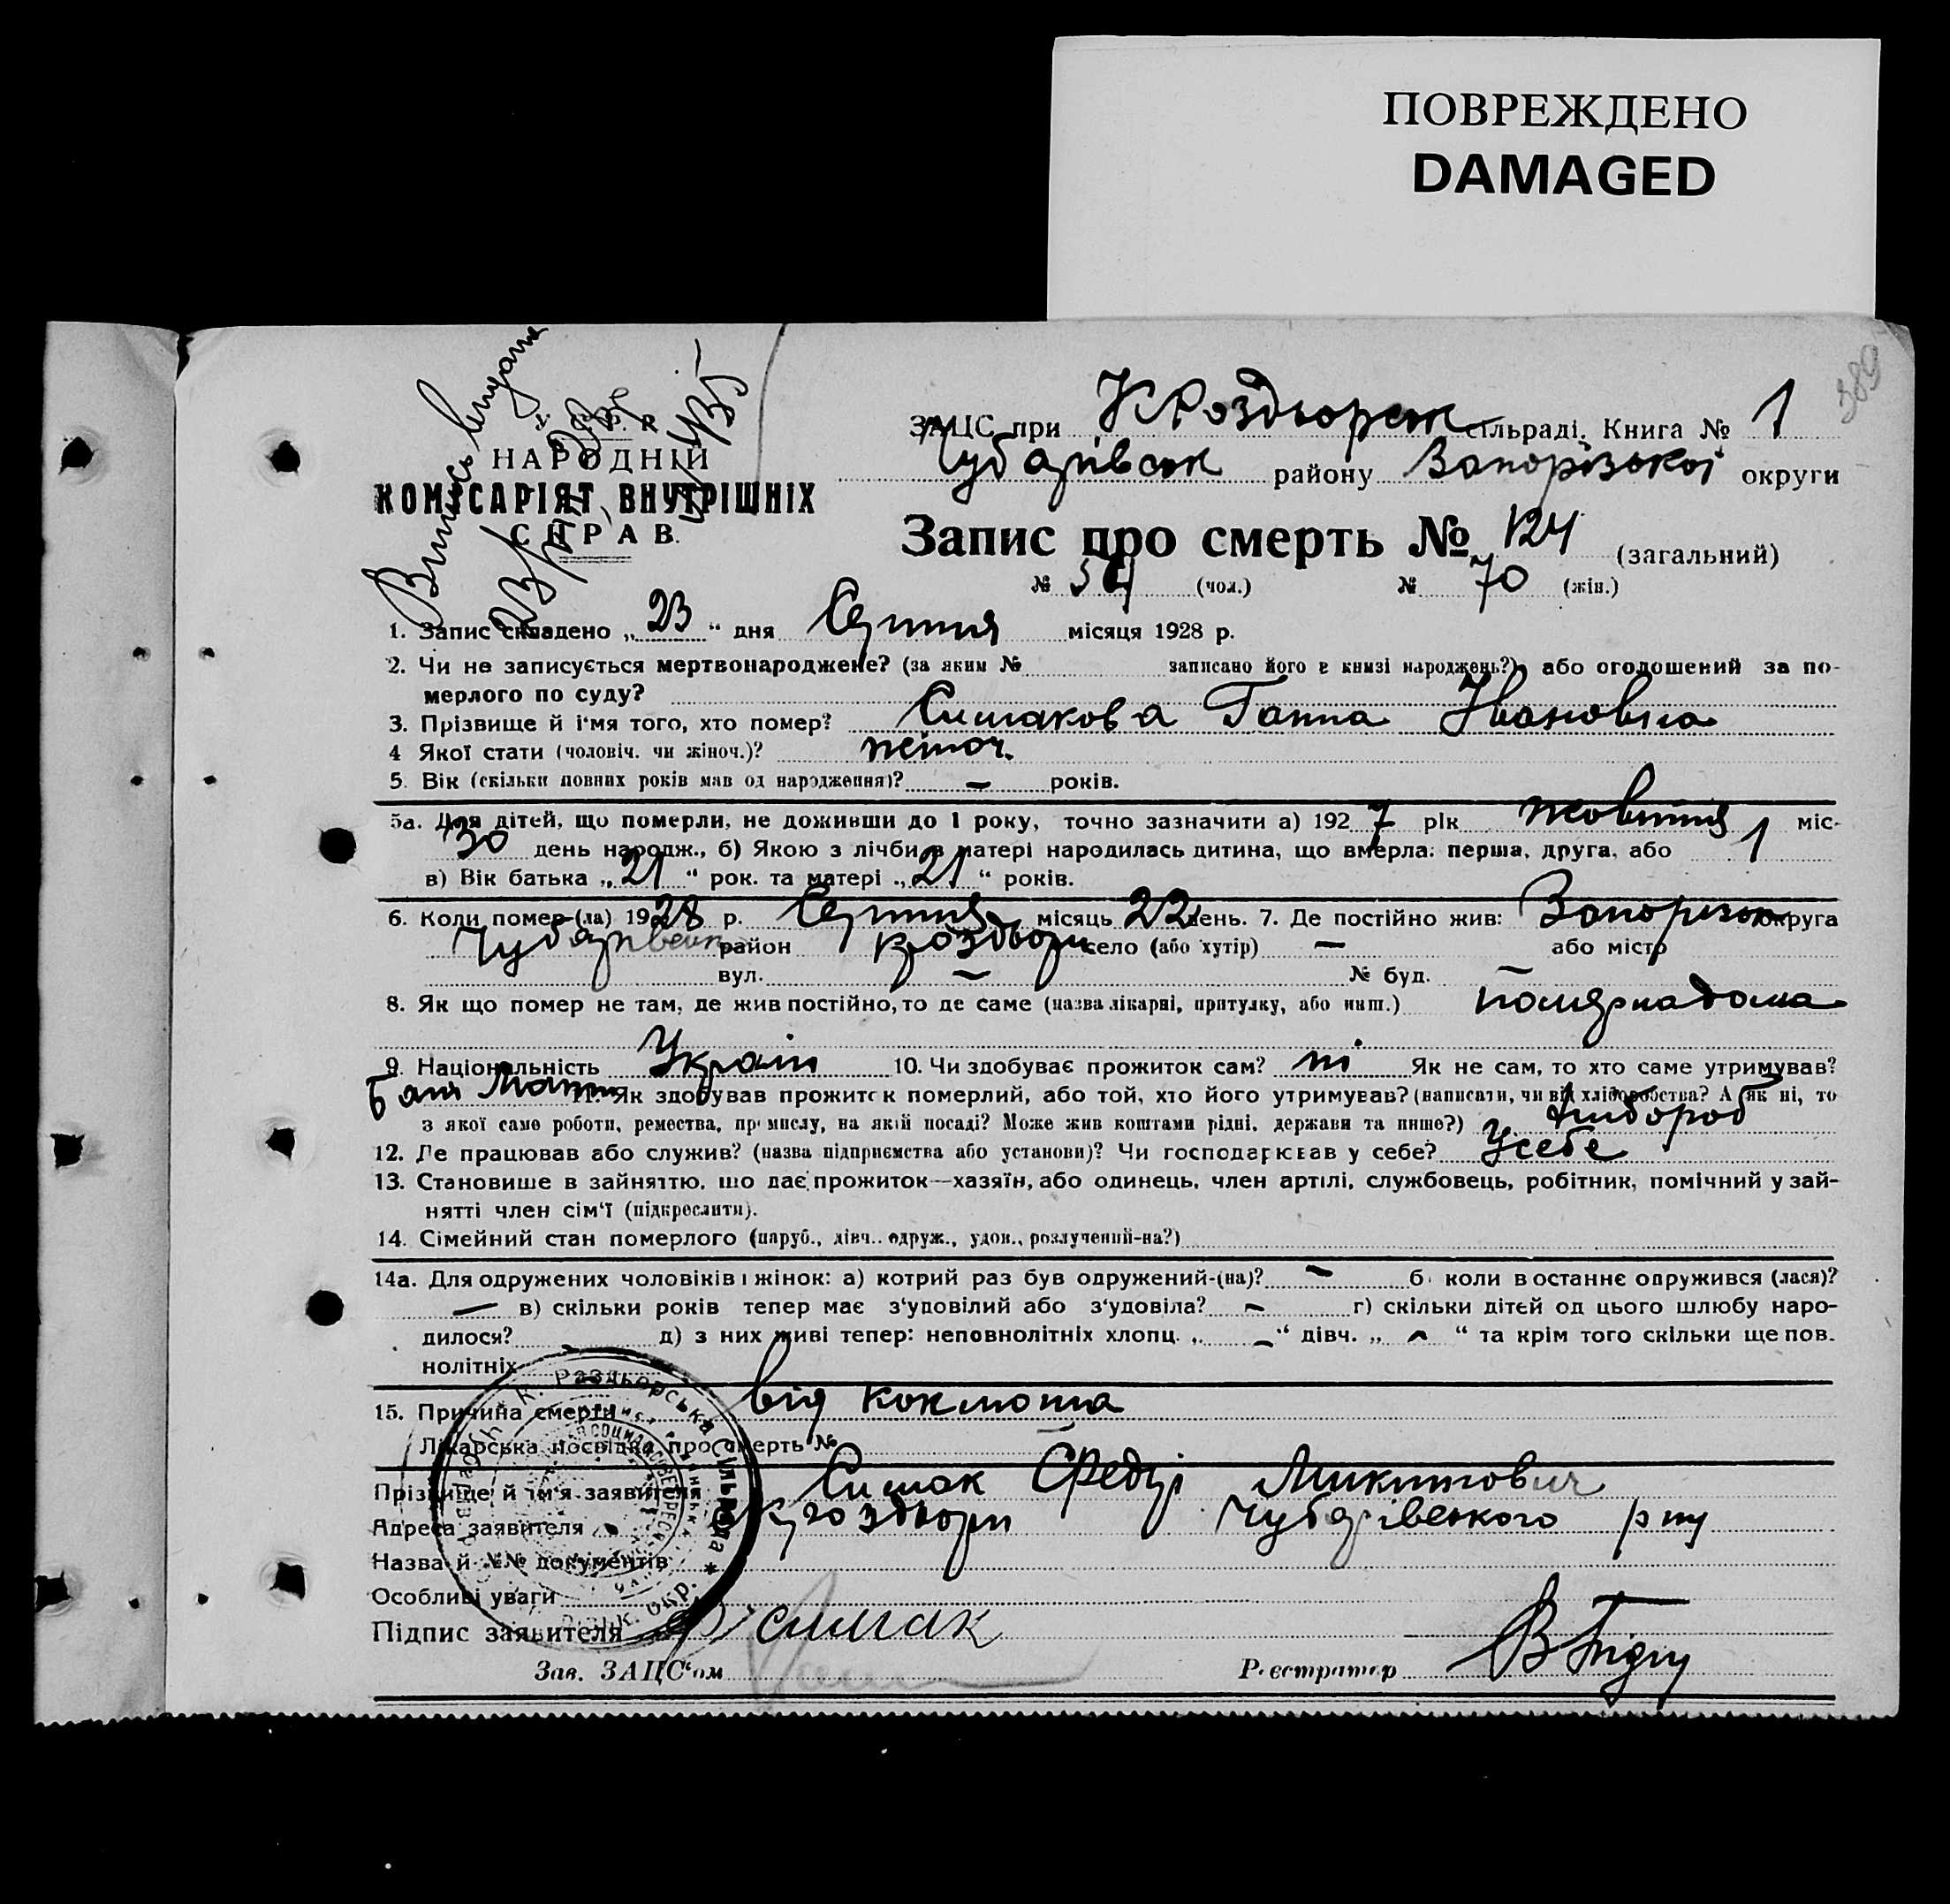 ПОВРЕЖДЕНО
DAMAGED
389
Випись видана
У. С. Р. Р.
НАРОДНІЙ
КОМІСАРІЯТ ВНУТРІШНІХ
СПРАВ.
ЗАЦС при К Роздорск сільраді. Книга № 1
Чубарівськ району Запорізької округи
Запис про смерть № 124 (загальний)
№ 54 (чол.) № 70 (жін.)
1. Запис складено „ 23 “ дня Серпня місяця 1928 р.
2. Чи не записується мертвонароджене? (за яким № записано його в книзі народжень?) або оголошений за по-
мерлого по суду?
3. Прізвище й і'мя того, хто помер? Симакова Ганна Івановна
4 Якої стати (чоловіч. чи жіноч.)? жіноч.
5. Вік (скільки повних років мав од народження)? — років.
5а. Для дітей, що померли, не доживши до 1 року, точно зазначити а) 192 7 рік жовтня міс-
30 день народж., б) Якою з лічби в матері народилась дитина, що вмерла: перша, друга, або 1
в) Вік батька „ 21 “ рок. та матері „ 21 “ років.
6. Коли помер-(ла) 19 28 р. Серпня місяць 22 день. 7. Де постійно жив: Запорізьк округа
Чубарівськ район К роздори село (або хутір) — або місто
вул. — № буд. —
8. Як що помер не там, де жив постійно, то де саме (назва лікарні, притулку, або инш.) померла дома
9. Національність Украін 10. Чи здобуває прожиток сам? ні Як не сам, то хто саме утримував?
Батя Мати 11. Як здобував прожиток померлий, або той, хто його утримував? (написати, чи від хліборобства? А як ні, то
з якої саме роботи, ремества, промислу, на якій посаді? Може жив коштами рідні, держави та инше?) хлібороб
12. Де працював або служив? (назва підприємства або установи)? Чи господарював у себе? У себе
13. Становише в зайняттю, що дає прожиток—хазяїн, або одинець, член артілі, службовець, робітник, помічний у зай-
нятті член сім'ї (підкреслити).
14. Сімейний стан померлого (паруб., дівч.. одруж., удов., розлучений-на?)
14а. Для одружених чоловіків і жінок: а) котрий раз був одружений-(на)? — б) коли в останнє одружився (лася)?
— в) скільки років тепер має з'удовілий або з'удовіла? — г) скільки дітей од цього шлюбу наро-
дилося? д) з них живі тепер: неповнолітніх хлопц. „ — “ дівч. „ — “ та крім того скільки ще пов.
нолітніх
15. Причина смерти від коклюша
Лікарська посвідка про смерть № —
Прізвище й ім'я заявителя Симак Федір Микитович
Адреса заявителя К роздори Чубарівського р ну
Назва й №№ документів
Особливі уваги
Підпис заявителя Ф Симак
Зав. ЗАЦС'ом Реєстратор
К. Раздьорська Сільрада * окр.